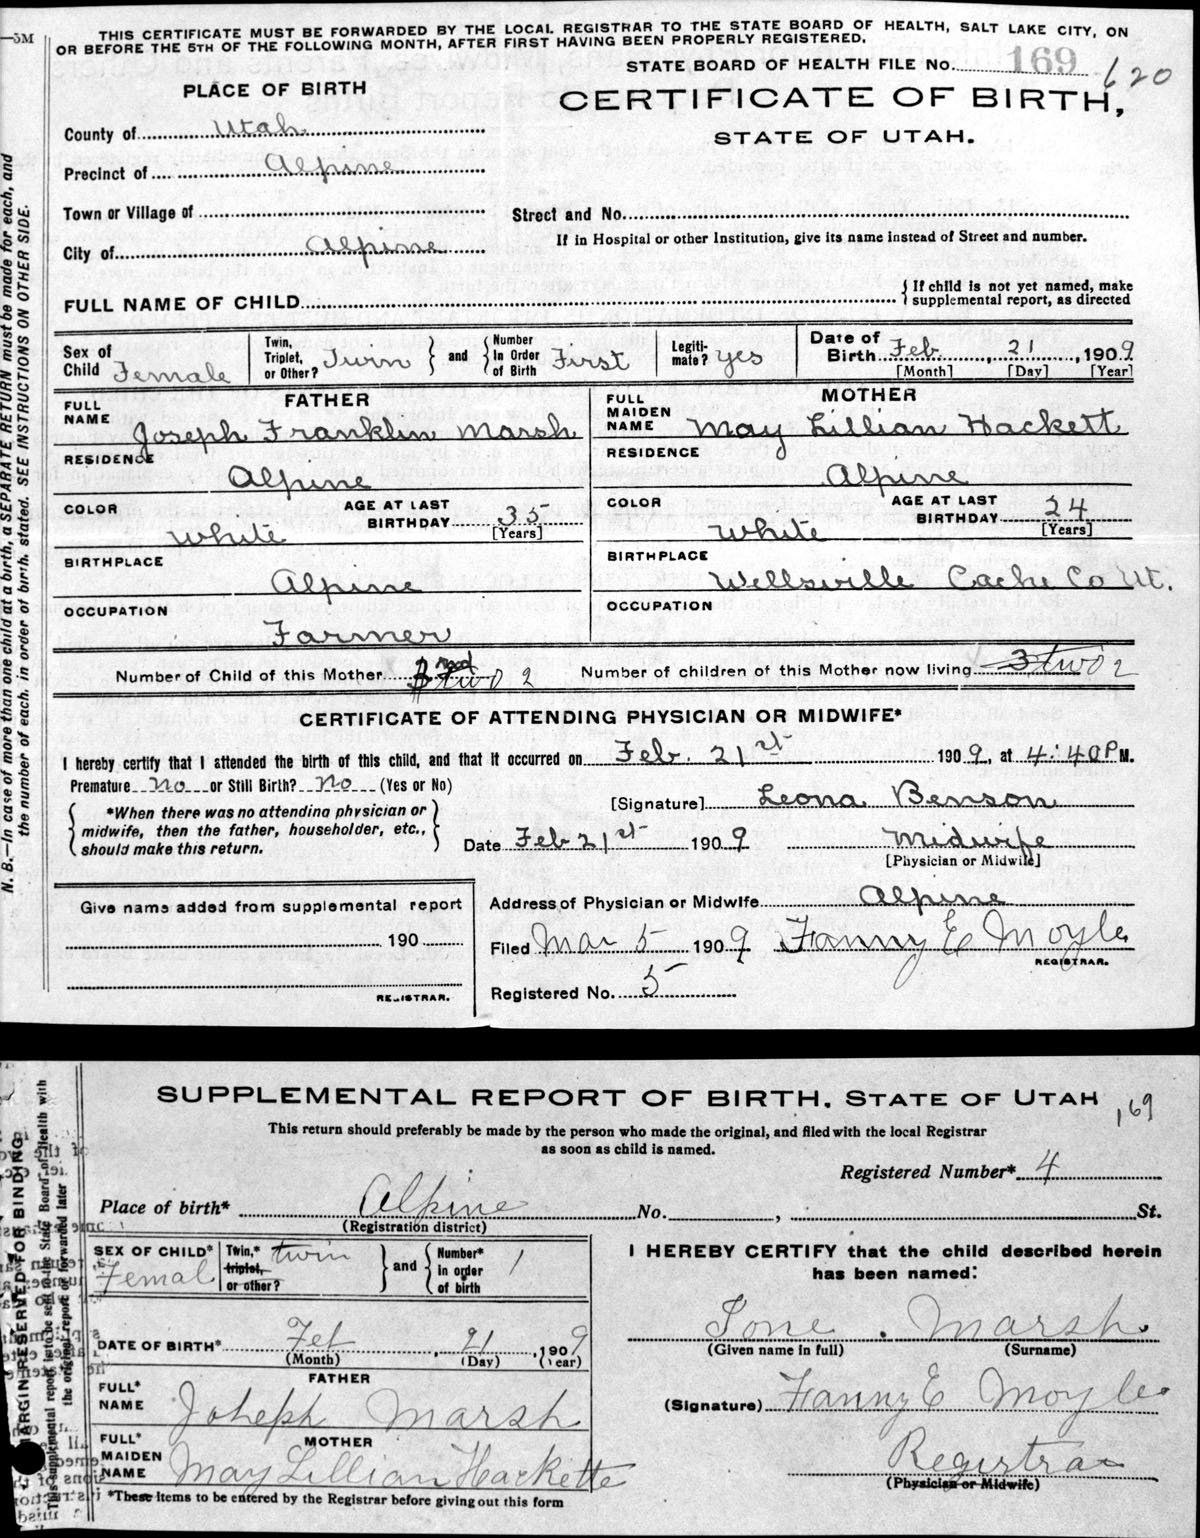 —5M
THIS CERTIFICATE MUST BE FORWARDED BY THE LOCAL REGISTRAR TO THE STATE BOARD OF HEALTH, SALT LAKE CITY, ON
OR BEFORE THE 5TH OF THE FOLLOWING MONTH, AFTER FIRST HAVING BEEN PROPERLY REGISTERED.
STATE BOARD OF HEALTH FILE No. 169 620
PLACE OF BIRTH
CERTIFICATE OF BIRTH,
STATE OF UTAH.
County of Utah
Precinct of Alpine
Town or Village of
Street and No.
City of Alpine
If in Hospital or other Institution, give its name instead of Street and number.
FULL NAME OF CHILD
{If child is not yet named, make
supplemental report, as directed
Sex of Child Female
Twin, Triplet, or Other? Twin } and { Number In Order of Birth First
Legiti-mate? yes
Date of Birth Feb. , 21 , 1909
[Month] [Day] [Year]
FATHER
FULL NAME Joseph Franklin Marsh
RESIDENCE Alpine
COLOR White AGE AT LAST BIRTHDAY 35 [Years]
BIRTHPLACE Alpine
OCCUPATION Farmer
MOTHER
FULL MAIDEN NAME May Lillian Hackett
RESIDENCE Alpine
COLOR White AGE AT LAST BIRTHDAY 24 [Years]
BIRTHPLACE Wellsville Cache Co Ut.
OCCUPATION
Number of Child of this Mother two 2 Number of children of this Mother now living 3 two 2
CERTIFICATE OF ATTENDING PHYSICIAN OR MIDWIFE*
I hereby certify that I attended the birth of this child, and that it occurred on Feb. 21st 1909, at 4:40 P M.
Premature No or Still Birth? No (Yes or No)
{ *When there was no attending physician or
midwife, then the father, householder, etc.,
should make this return. }
[Signature] Leona Benson
Date Feb 21st 1909 Midwife
[Physician or Midwife]
Give name added from supplemental report
190
REGISTRAR.
Address of Physician or Midwife Alpine
Filed Mar 5 1909 Fanny E Moyle
REGISTRAR.
Registered No. 5
N. B.—In case of more than one child at a birth, a SEPARATE RETURN must be made for each, and
the number of each, in order of birth, stated. SEE INSTRUCTIONS ON OTHER SIDE.
SUPPLEMENTAL REPORT OF BIRTH, STATE OF UTAH 169
This return should preferably be made by the person who made the original, and filed with the local Registrar
as soon as child is named.
Registered Number* 4
Place of birth* Alpine No. , St.
(Registration district)
SEX OF CHILD* Femal
Twin,* triplet, or other? twin } and { Number* in order of birth 1
DATE OF BIRTH* Feb , 21 , 1909
(Month) (Day) (Year)
FATHER
FULL* NAME Joheph Marsh
MOTHER
FULL* MAIDEN NAME May Lillian Hackette
*These items to be entered by the Registrar before giving out this form
I HEREBY CERTIFY that the child described herein
has been named:
Ione . Marsh.
(Given name in full) (Surname)
(Signature) Fanny E Moyle
Registrar
(Physician or Midwife)
MARGIN RESERVED FOR BINDING
This supplemental report into be sent to the State Board of Health with
the original report or forwarded later